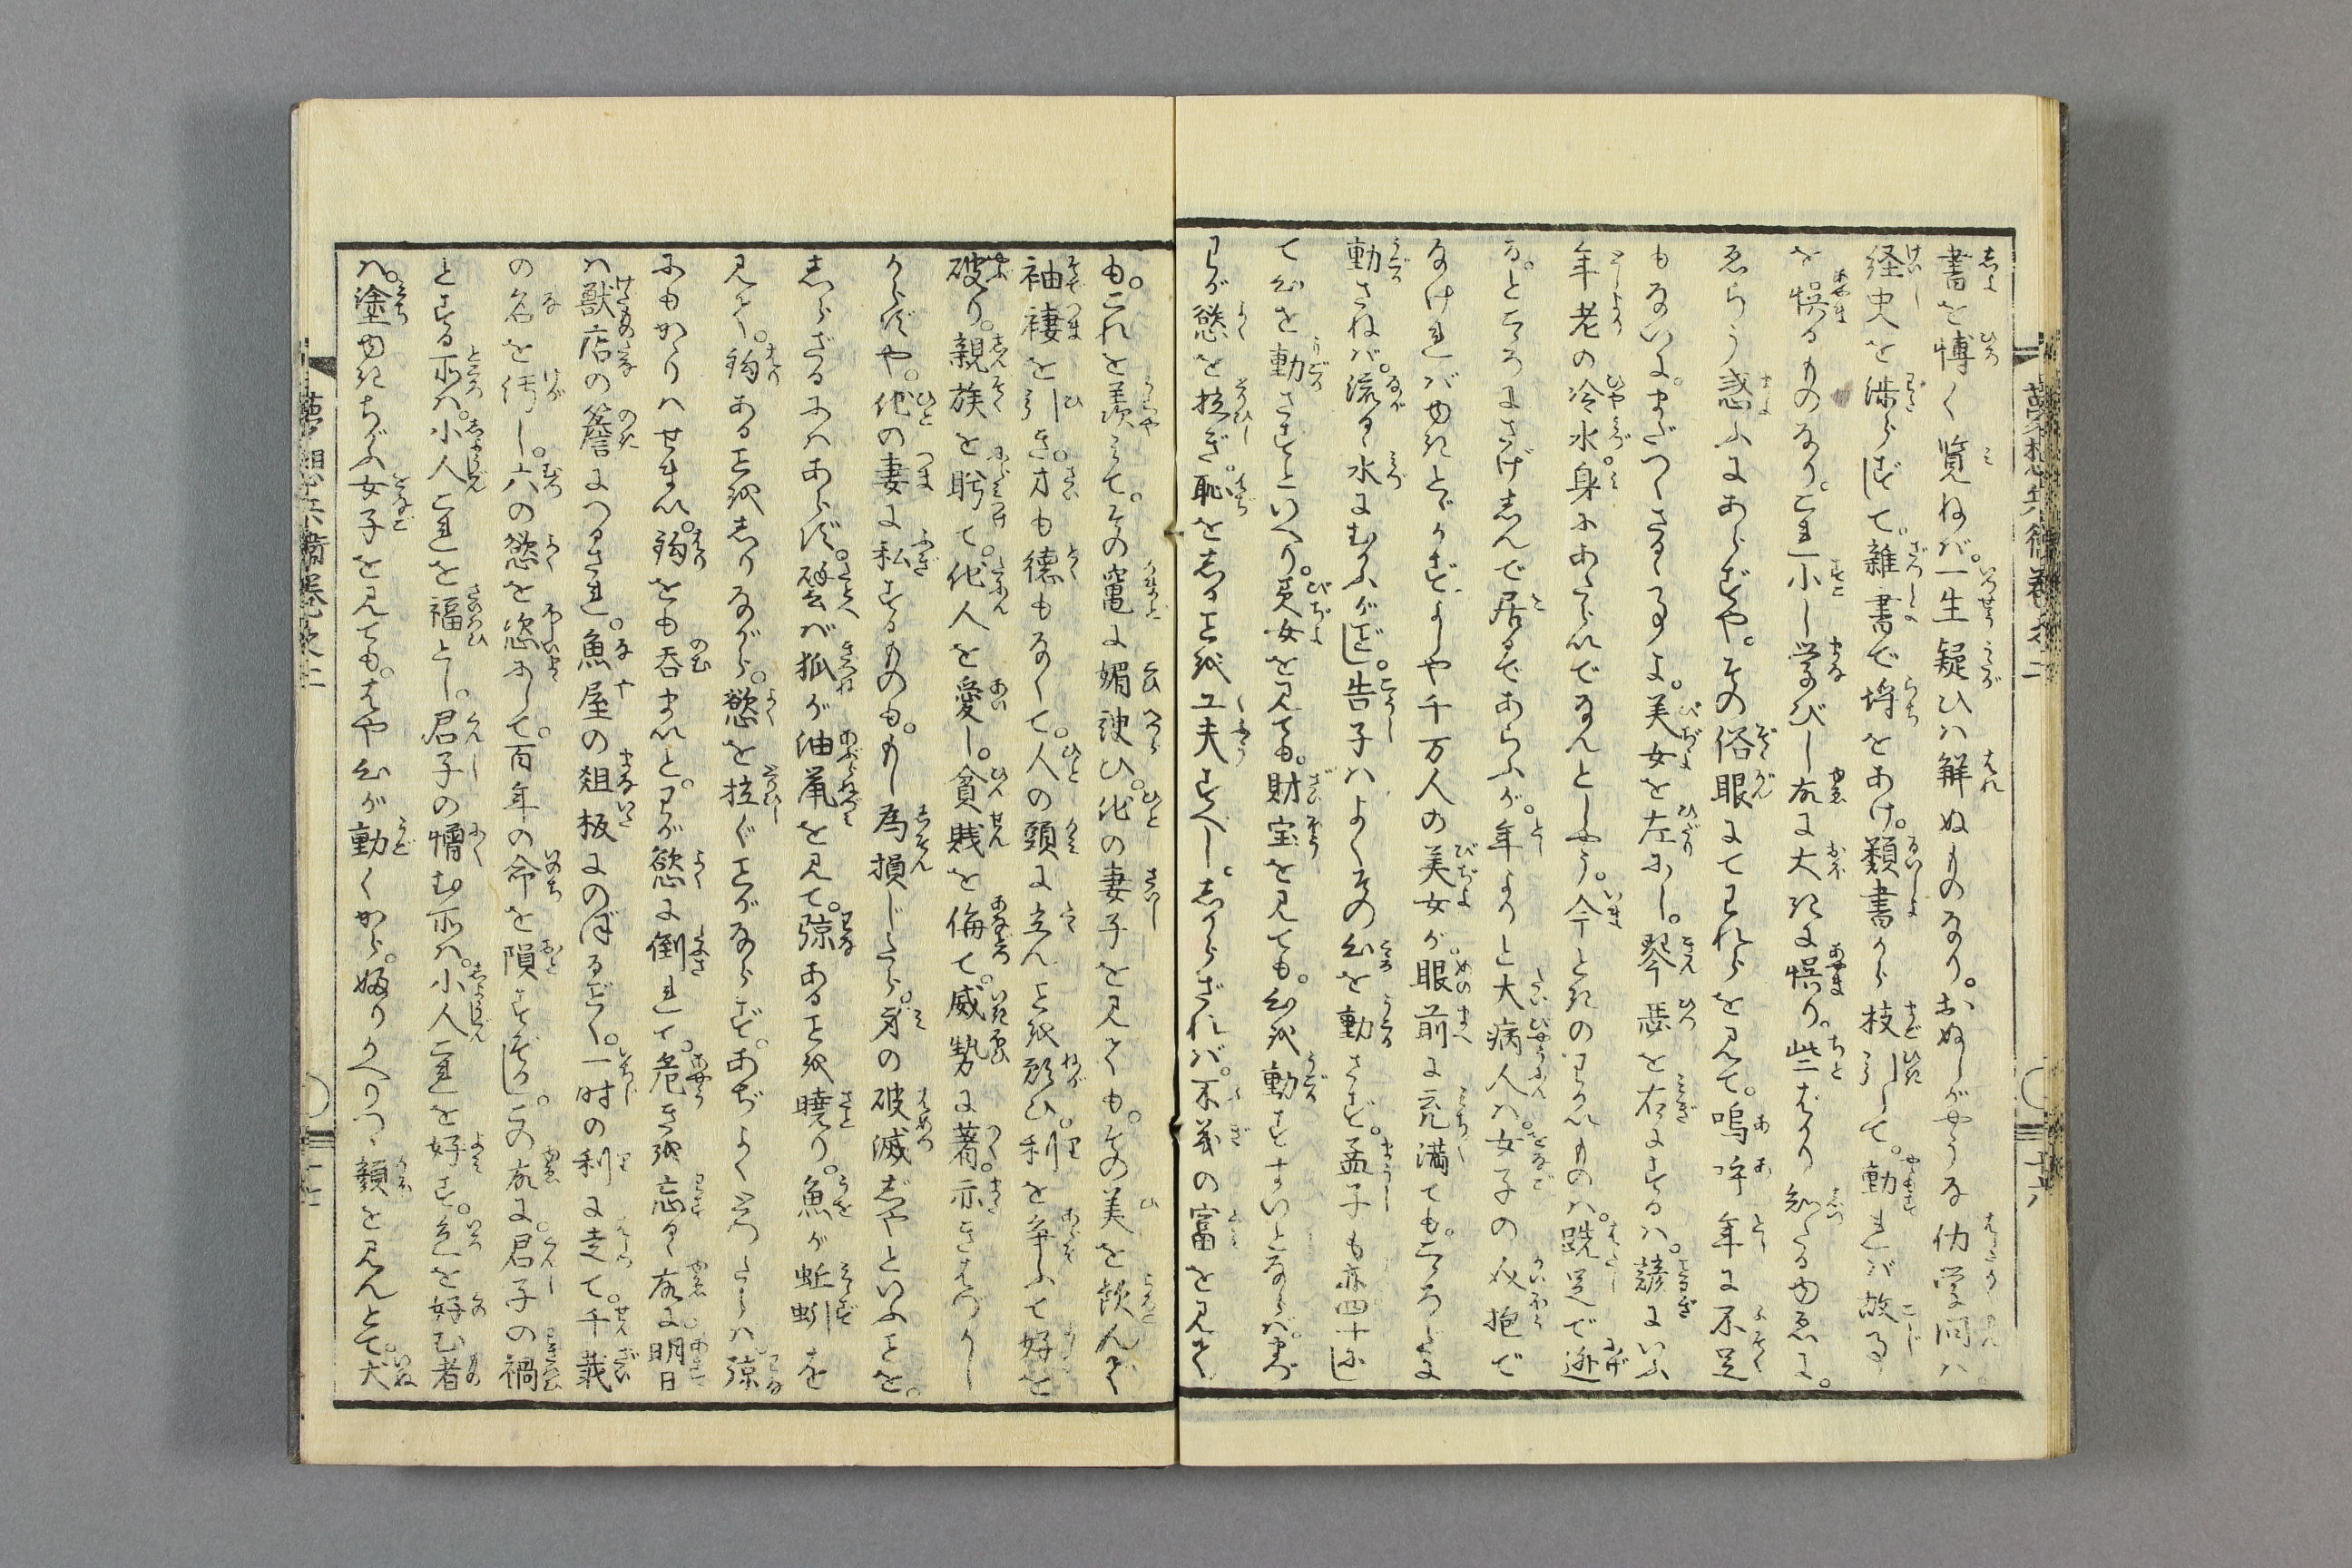 書を博く覧ねバ。一生疑ひハ觧ぬものなり。おぬしがやうな仂学問ハ。
経史を渉らずして。雑書で埒をあけ。類書から枝引して。動れバ故事
を悞るものなり。これ小し学びし故に大きに悞り。些ばかり知たるゆゑに。
ゑらう惑ふにあらずや。その俗眼にてわれらを見て。嗚呼年に不足
もないに。まだつたなき事よ。美女を左にし。琴瑟を右にするハ。諺にいふ
年老の冷水。身にあたらいでなんとしやう。今ときのわかいものハ。跣足で逃
る。ところにさげしんで居るであらふが。年よりと大病人ハ。女子の介抱で
なけれバゆきとゞかずよしや千万人の美女が。眼前に充満ても。こゝろだに
動さねバ。流るゝ水にむかふがごとし。告子ハよくその心を動さず。孟子も亦四十にし
て心を動さずといへり。美女を見ても。財宝を見ても。心を動すまいとならバ。まづ
わが慾を拉ぎ。恥をしる工を工夫すべし。しからざれバ。不義の富を見て
も。これを羨みて。その竃に媚諛ひ。他の妻子を見ても。その美を飲んで
袖褄を引き。才も徳もなくて。人の頭に立んことを願ひ。利を争ふて好を
破り。親族を眤て。他人を愛し。貧賎を侮て。威勢に著。示きはづかし
からずや。他の妻に私するものも。もし為損じたら。身の破滅じやといふことを。
しらざるにハあらず。譬バ狐が油鼠を見て。弶あることを暁り。魚が蚯蚓を
見て。鈎あることをしりながら。慾を拉ぐことがならず。あぢよくしたらハ弶
にもかゝりハせまい。鈎をも呑まいと。わが慾に倒れて。危きを忘るゝ故に。明日
ハ獣店の簷につるされ。魚屋の俎板にのぼるごとく。一時の利に走て。千載
の名を汚し。六の慾を恣にして。百年の命を隕すぞかし。この故に。君子の禍
とする所ハ。小人これを福とし。君子の憎む所ハ。小人これを好す。色を好む者
ハ。塗ゆきちがふ女子を見ても。はや心が動くから。婦りかへりつゝ顔を見んとて。犬